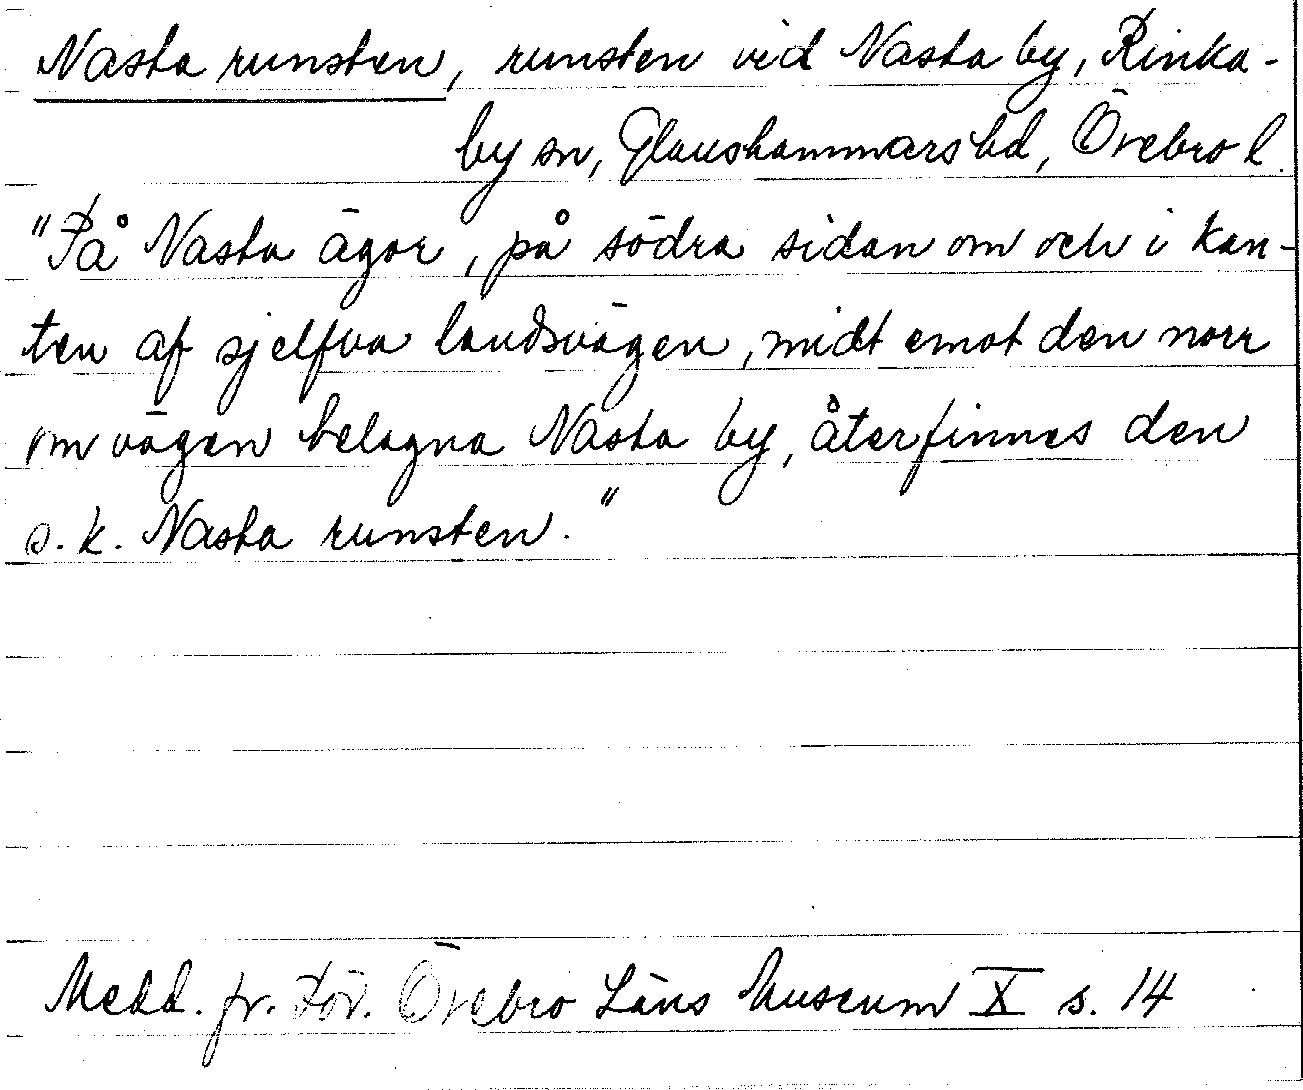 Nasta runsten, runsten vid Nasta by, Rinka-
by sn, Glanshammars hd, Örebro l.
"På Nasta ägor, på södra sidan om och i kan-
ten af sjelfva landsvägen, midt emot den norr
om vägen belagna Nasta by, återfinnes den
s.k. Nasta runsten."
Medd. fr. För. Örebro Läns Museum X s. 14